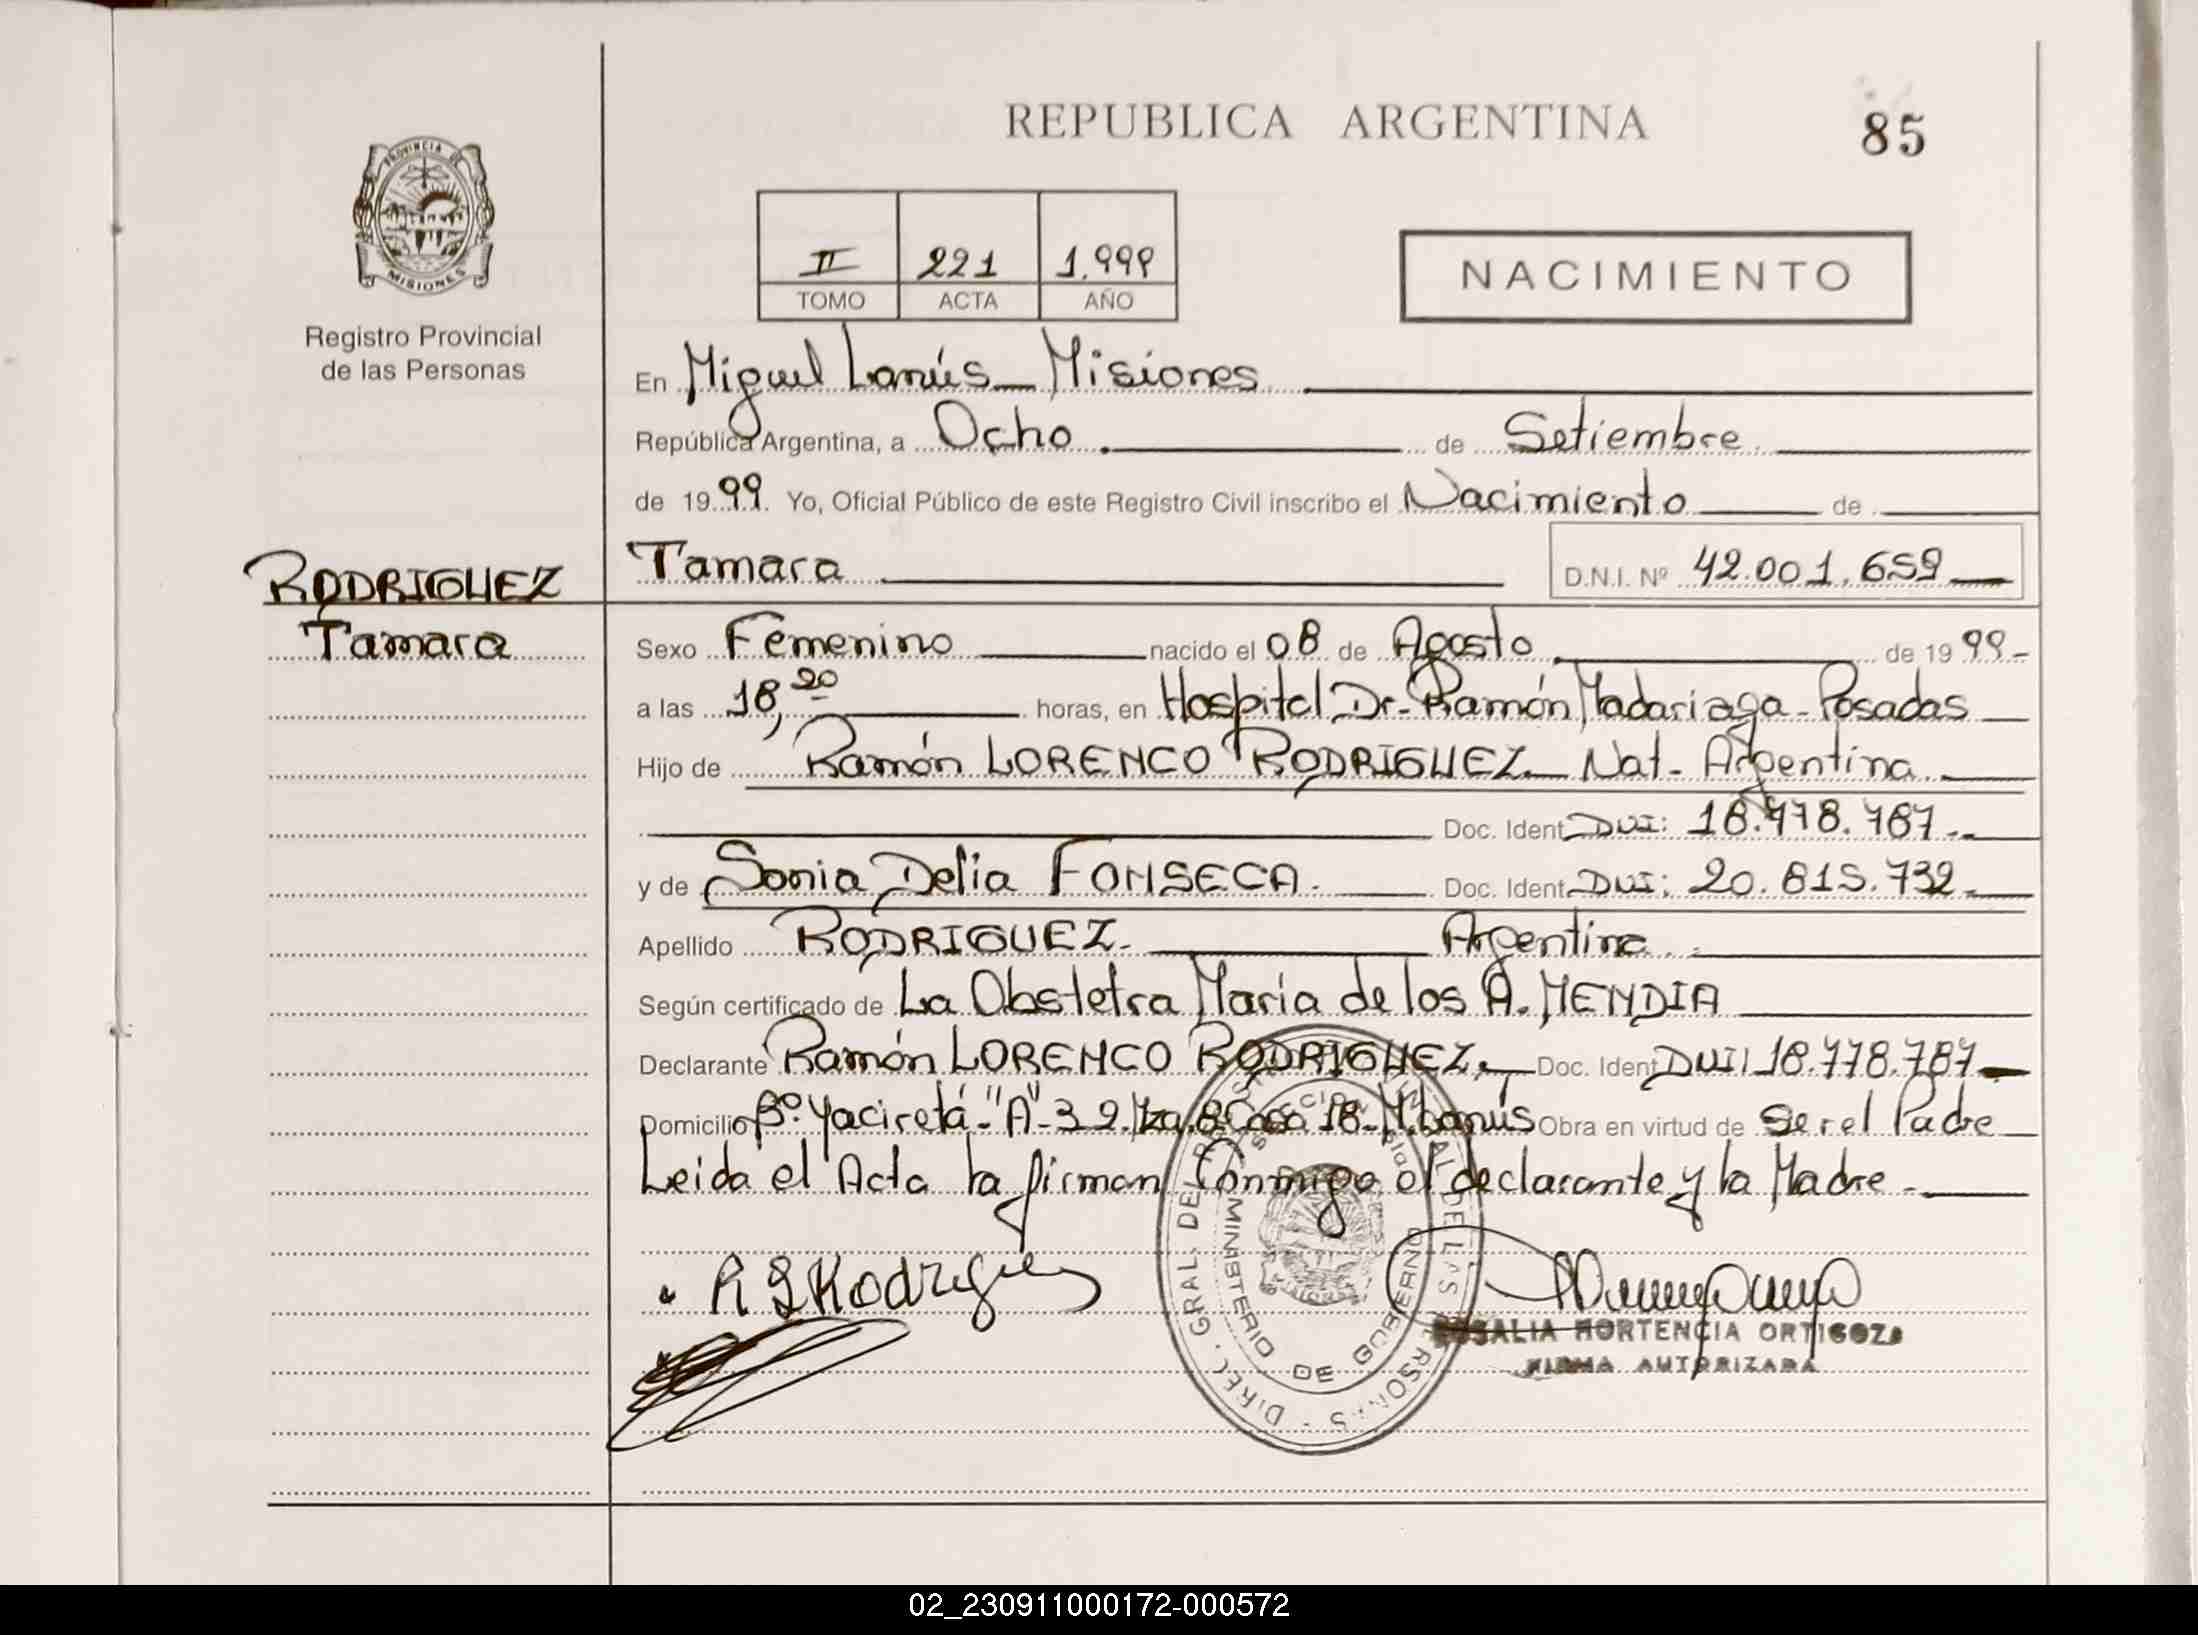 REPUBLICA ARGENTINA
85
PROVINCIA DE
MISIONES
Registro Provincial
de las Personas
II 221 1.999
TOMO ACTA AÑO
NACIMIENTO
En Miguel Lanús - Misiones
República Argentina, a Ocho de Setiembre
de 1999. Yo, Oficial Público de este Registro Civil inscribo el Nacimiento de
Tamara D.N.I. Nº 42.001.659
RODRIGUEZ
Tamara
Sexo Femenino nacido el 08 de Agosto de 1999-
a las 18,20 horas, en Hospital Dr. Ramón Madariaga - Posadas
Hijo de Ramón LORENCO RODRIGUEZ - Nat - Argentina
Doc. Ident. DNI: 18.778.787
y de Sonia Delia FONSECA. Doc. Ident. DNI: 20.815.732
Apellido RODRIGUEZ - Argentina
Según certificado de La Obstetra María de los A. MENDIA
Declarante Ramón LORENCO RODRIGUEZ, Doc. Ident. DNI 18.778.787
Domicilio Bº. Yaciretá - "A" - 32. Mza. 8 Casa 18 - M. Lanús Obra en virtud de ser el Padre
Leida el Acta la firman Conmigo el declarante y la Madre -
R L Rodriguez
DIREC. GRAL. DEL DE LAS PERSONAS
MINISTERIO DE GOBIERNO
ROSALIA HORTENCIA ORTIGOZA
FIRMA AUTORIZADA
02_230911000172-000572